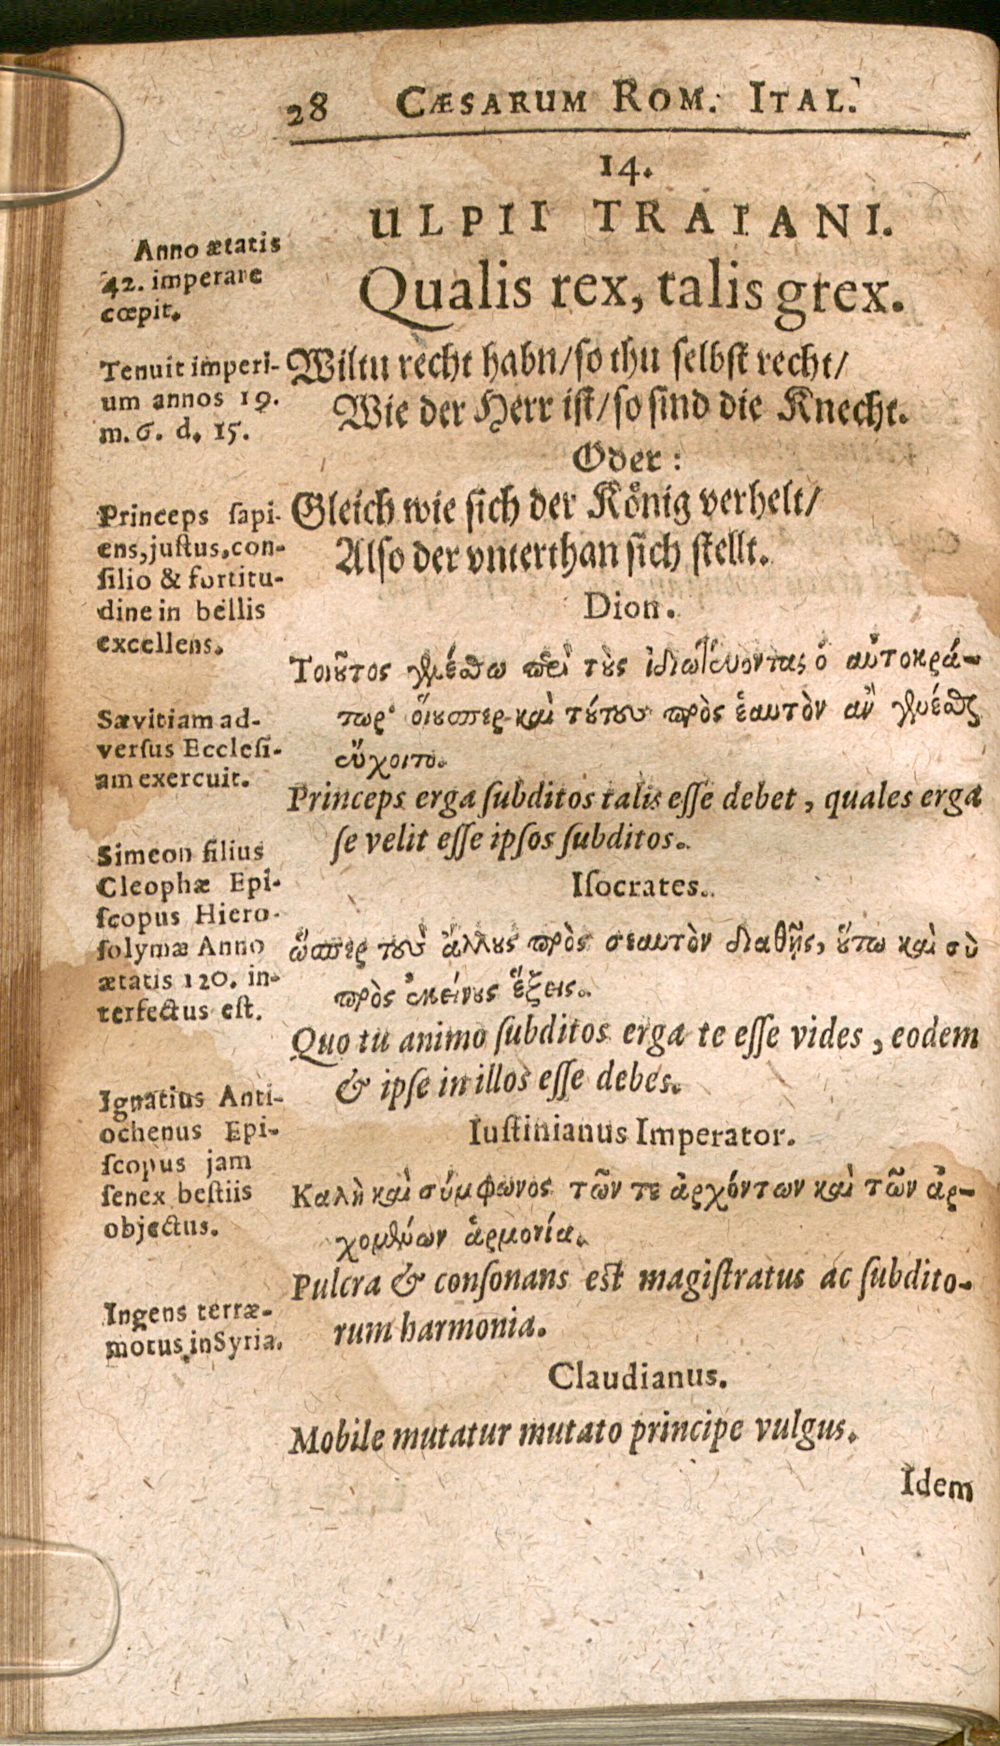 28 CÆSARUM ROM. ITAL.
14.
ULPII TRAIANI.
Qualis rex, talis grex.
Wiltu recht habn/so thu selbst recht/
Wie der Herr ist/so sind die Knecht.
Oder:
Gleich wie sich der Kőnig verhelt/
Also der vnterthan sich stellt.
Dion.
Τοιοῦτος γινέσθω περὶ τοὺς ἰδιωτεύοντας ὁ αὐτοκρά-
τωρ· οἵουσπερ καὶ τούτους πρὸς ἑαυτὸν ἂν γενέσθαι
εὔχοιτο.
Princeps erga ſubditos talis eſſe debet, quales erga
ſe velit eſſe ipſos ſubditos.
Iſocrates.
ὥσπερ τοὺς ἄλλους πρὸς σεαυτὸν διαθῇς, οὕτω καὶ σὺ
πρὸς ἐκείνους ἕξεις.
Quo tu animo ſubditos erga te eſſe vides, eodem
& ipſe in illos eſſe debes.
Iuſtinianus Imperator.
Καλὴ καὶ σύμφωνος τῶν τε ἀρχόντων καὶ τῶν ἀρ-
χομένων ἁρμονία.
Pulcra & conſonans est magiſtratus ac ſubdito-
rum harmonia.
Claudianus.
Mobile mutatur mutato principe vulgus.
Idem
Anno ætatis
42. imperare
cœpit.
Tenuit imperi-
um annos 19.
m. 6. d. 15.
Princeps ſapi-
ens, juſtus, con-
ſilio & fortitu-
dine in bellis
excellens.
Sævitiam ad-
verſus Eccleſi-
am exercuit.
Simeon filius
Cleophæ Epi-
ſcopus Hiero-
ſolymæ Anno
ætatis 120. in-
terfectus eſt.
Ignatius Anti-
ochenus Epi-
ſcopus jam
ſenex beſtiis
objectus.
Ingens terræ-
motus in Syria.